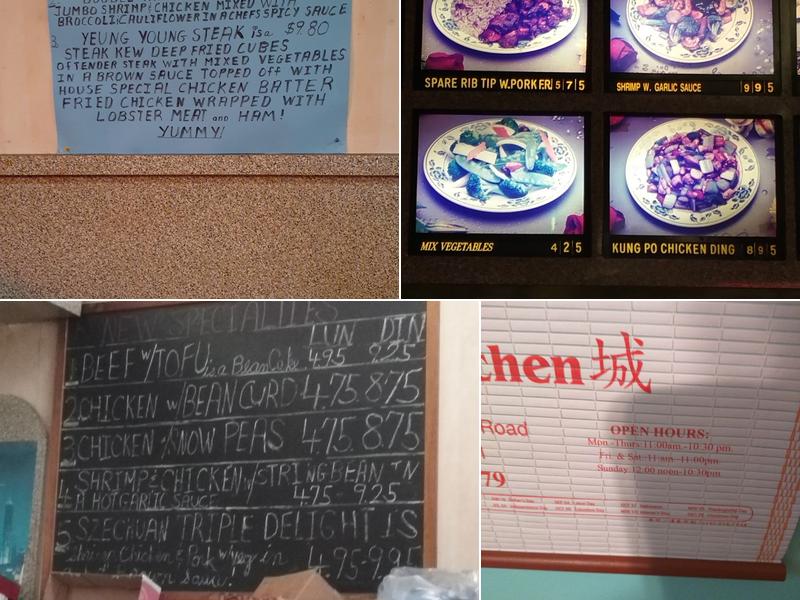 JUMBO SHRIMP & CHICKEN MIXED WITH
BROCCOLI & CAULIFLOWER IN A CHEFS SPICY SAUCE
3. YEUNG YOUNG STEAK is a $9.80
STEAK KEW DEEP FRIED CUBES
OF TENDER STEAK WITH MIXED VEGETABLES
IN A BROWN SAUCE TOPPED OFF WITH
HOUSE SPECIAL CHICKEN BATTER
FRIED CHICKEN WRAPPED WITH
LOBSTER MEAT and HAM!
YUMMY!
SPARE RIB TIP W.PORK FR 5 7 5
SHRIMP W. GARLIC SAUCE 9 9 5
MIX VEGETABLES 4 2 5
KUNG PO CHICKEN DING 8 9 5
NEW SPECIALTIES
LUN DIN
1 BEEF W/TOFU is a Bean Cake 4.95 9.25
2 CHICKEN W/BEAN CURD 4.75 8.75
3 CHICKEN W/SNOW PEAS 4.75 8.75
4 SHRIMP & CHICKEN W/STRING BEAN IN
A HOT GARLIC SAUCE 4.75- 9.25
5 SZECHUAN TRIPLE DELIGHT IS
Shrimp Chicken & Pork in 4.95-9.95
Sauce.
chen 城
Road
79
OPEN HOURS:
Mon.-Thurs: 11:00am.-10:30 pm.
Fri. & Sat: 11am -11:00pm.
Sunday 12:00 noon-10:30pm